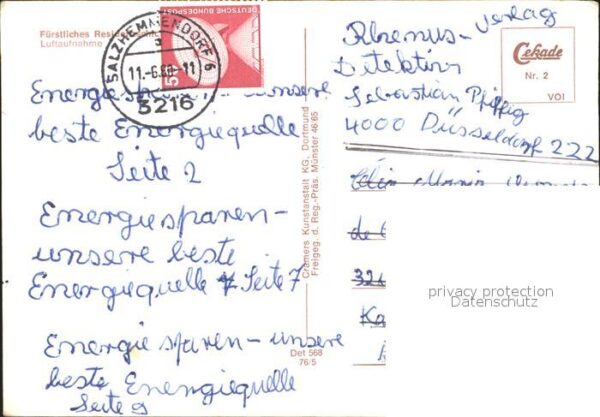 Fürstliches
Luftaufnahme
SALZHEMMENDORF 6
a
11.-6.80-11
3216
DEUTSCHE BUNDESPOST
Energiesparen - unsere
beste Energiequelle
Seite 2
Energiesparen -
unsere beste
Energiequelle Seite 7
Energie sparen - unsere
beste Energiequelle
Seite 9
Cramers Kunstanstalt KG, Dortmund
Freigeg. d. Reg.-Präs. Münster 48/65
Det 568
76/5
Rhenus-Verlag
Detektiv
Sebastian Pfiffig
4000 Düsseldorf 222
Cekade
Nr. 2
VOI
Maria
de
privacy protection
Datenschutz